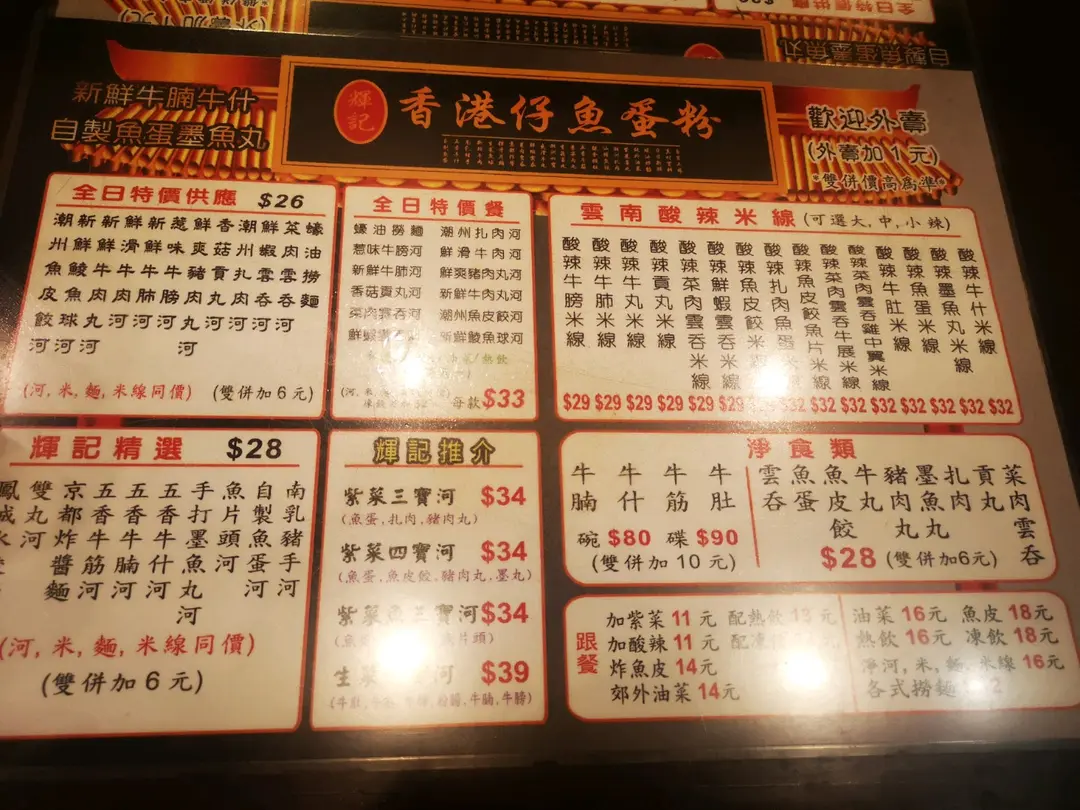 新鮮牛腩牛什
自製魚蛋墨魚丸
輝記
香港仔魚蛋粉
歡迎外賣
(外賣加1元)
*雙併價高為準*
全日特價供應 $26
潮州魚皮餃河
新鮮鯪魚球河
新鮮牛肉丸河
鮮滑牛肉河
新鮮牛肺河
惹味牛膀河
鮮爽豬肉丸河
香菇貢丸河
潮州扎肉河
鮮蝦雲吞河
菜肉雲吞河
蠔油撈麵
(河,米,麵,米線同價) (雙併加6元)
全日特價餐
蠔油撈麵 潮州扎肉河
惹味牛膀河 鮮滑牛肉河
新鮮牛肺河 鮮爽豬肉丸河
香菇貢丸河 新鮮牛肉丸河
菜肉雲吞河 潮州魚皮餃河
鮮蝦雲吞河 新鮮鯪魚球河
每款$33
雲南酸辣米線 (可選大,中,小辣)
酸辣牛膀米線
酸辣牛肺米線
酸辣牛丸米線
酸辣貢丸米線
酸辣菜肉雲吞米線
酸辣鮮蝦雲吞米線
酸辣魚皮餃米線
酸辣扎肉魚蛋米線
酸辣魚皮餃魚片米線
酸辣菜肉雲吞牛展米線
酸辣菜肉雲吞雞中翼米線
酸辣牛肚米線
酸辣魚蛋米線
酸辣墨魚丸米線
酸辣牛什米線
$29 $29 $29 $29 $29 $29 $32 $32 $32 $32 $32 $32 $32
輝記精選 $28
雙丸河
京都炸醬麵
五香牛筋河
五香牛腩河
五香牛什河
手打墨魚丸河
魚片頭河
自製魚蛋河
南乳豬手河
(河,米,麵,米線同價)
(雙併加6元)
輝記推介
紫菜三寶河 $34
(魚蛋,扎肉,豬肉丸)
紫菜四寶河 $34
(魚蛋,魚皮餃,豬肉丸,墨丸)
紫菜魚三寶河$34
片頭)
生 河 $39
牛腩,牛膀)
淨食類
牛腩
牛什
牛筋
牛肚
碗$80 碟$90
(雙併加10元)
雲吞
魚蛋
魚皮餃
牛丸
豬肉丸
墨魚丸
扎肉
貢丸
菜肉雲吞
$28 (雙併加6元)
跟餐
加紫菜11元 配熱飲13元
加酸辣11元 配凍
炸魚皮14元
郊外油菜14元
油菜16元 魚皮18元
熱飲16元 凍飲18元
淨河,米,麵,米線16元
各式撈麵